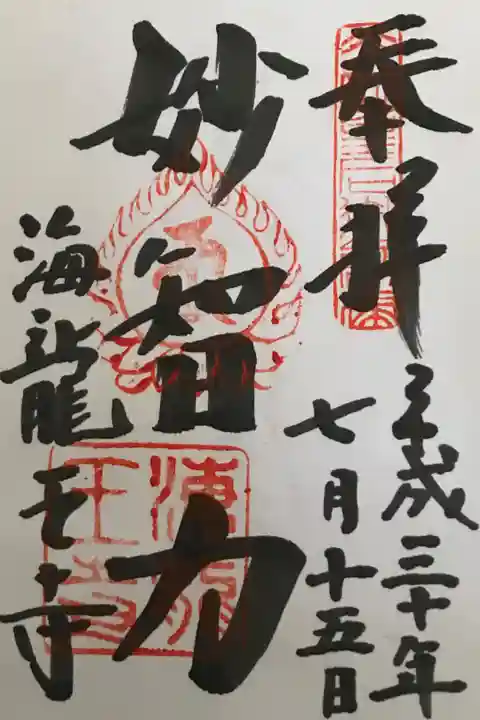 奉拝
平成三十年
七月十五日
妙智力
海龍王寺